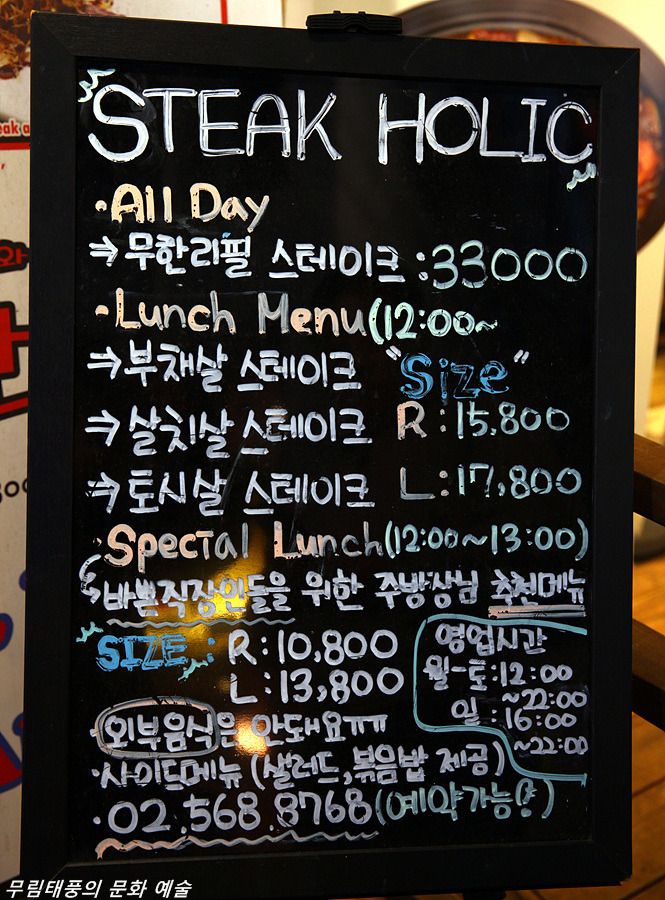 STEAK HOLIC
·All Day
⇒무한리필 스테이크 :33000
·Lunch Menu(12:00~
⇒부채살 스테이크 "Size"
⇒살치살 스테이크 R:15,800
⇒토시살 스테이크 L:17,800
·Special Lunch(12:00~13:00)
바쁜직장인들을 위한 주방장님 추천메뉴
SIZE : R:10,800
L:13,800
영업시간
월-토:12:00
~22:00
일:16:00
~22:00
·외부음식은 안돼요ㅠㅠ
·사이드메뉴(샐러드,볶음밥 제공)
·02.568.8768(예약가능!)
무림태풍의 문화 예술